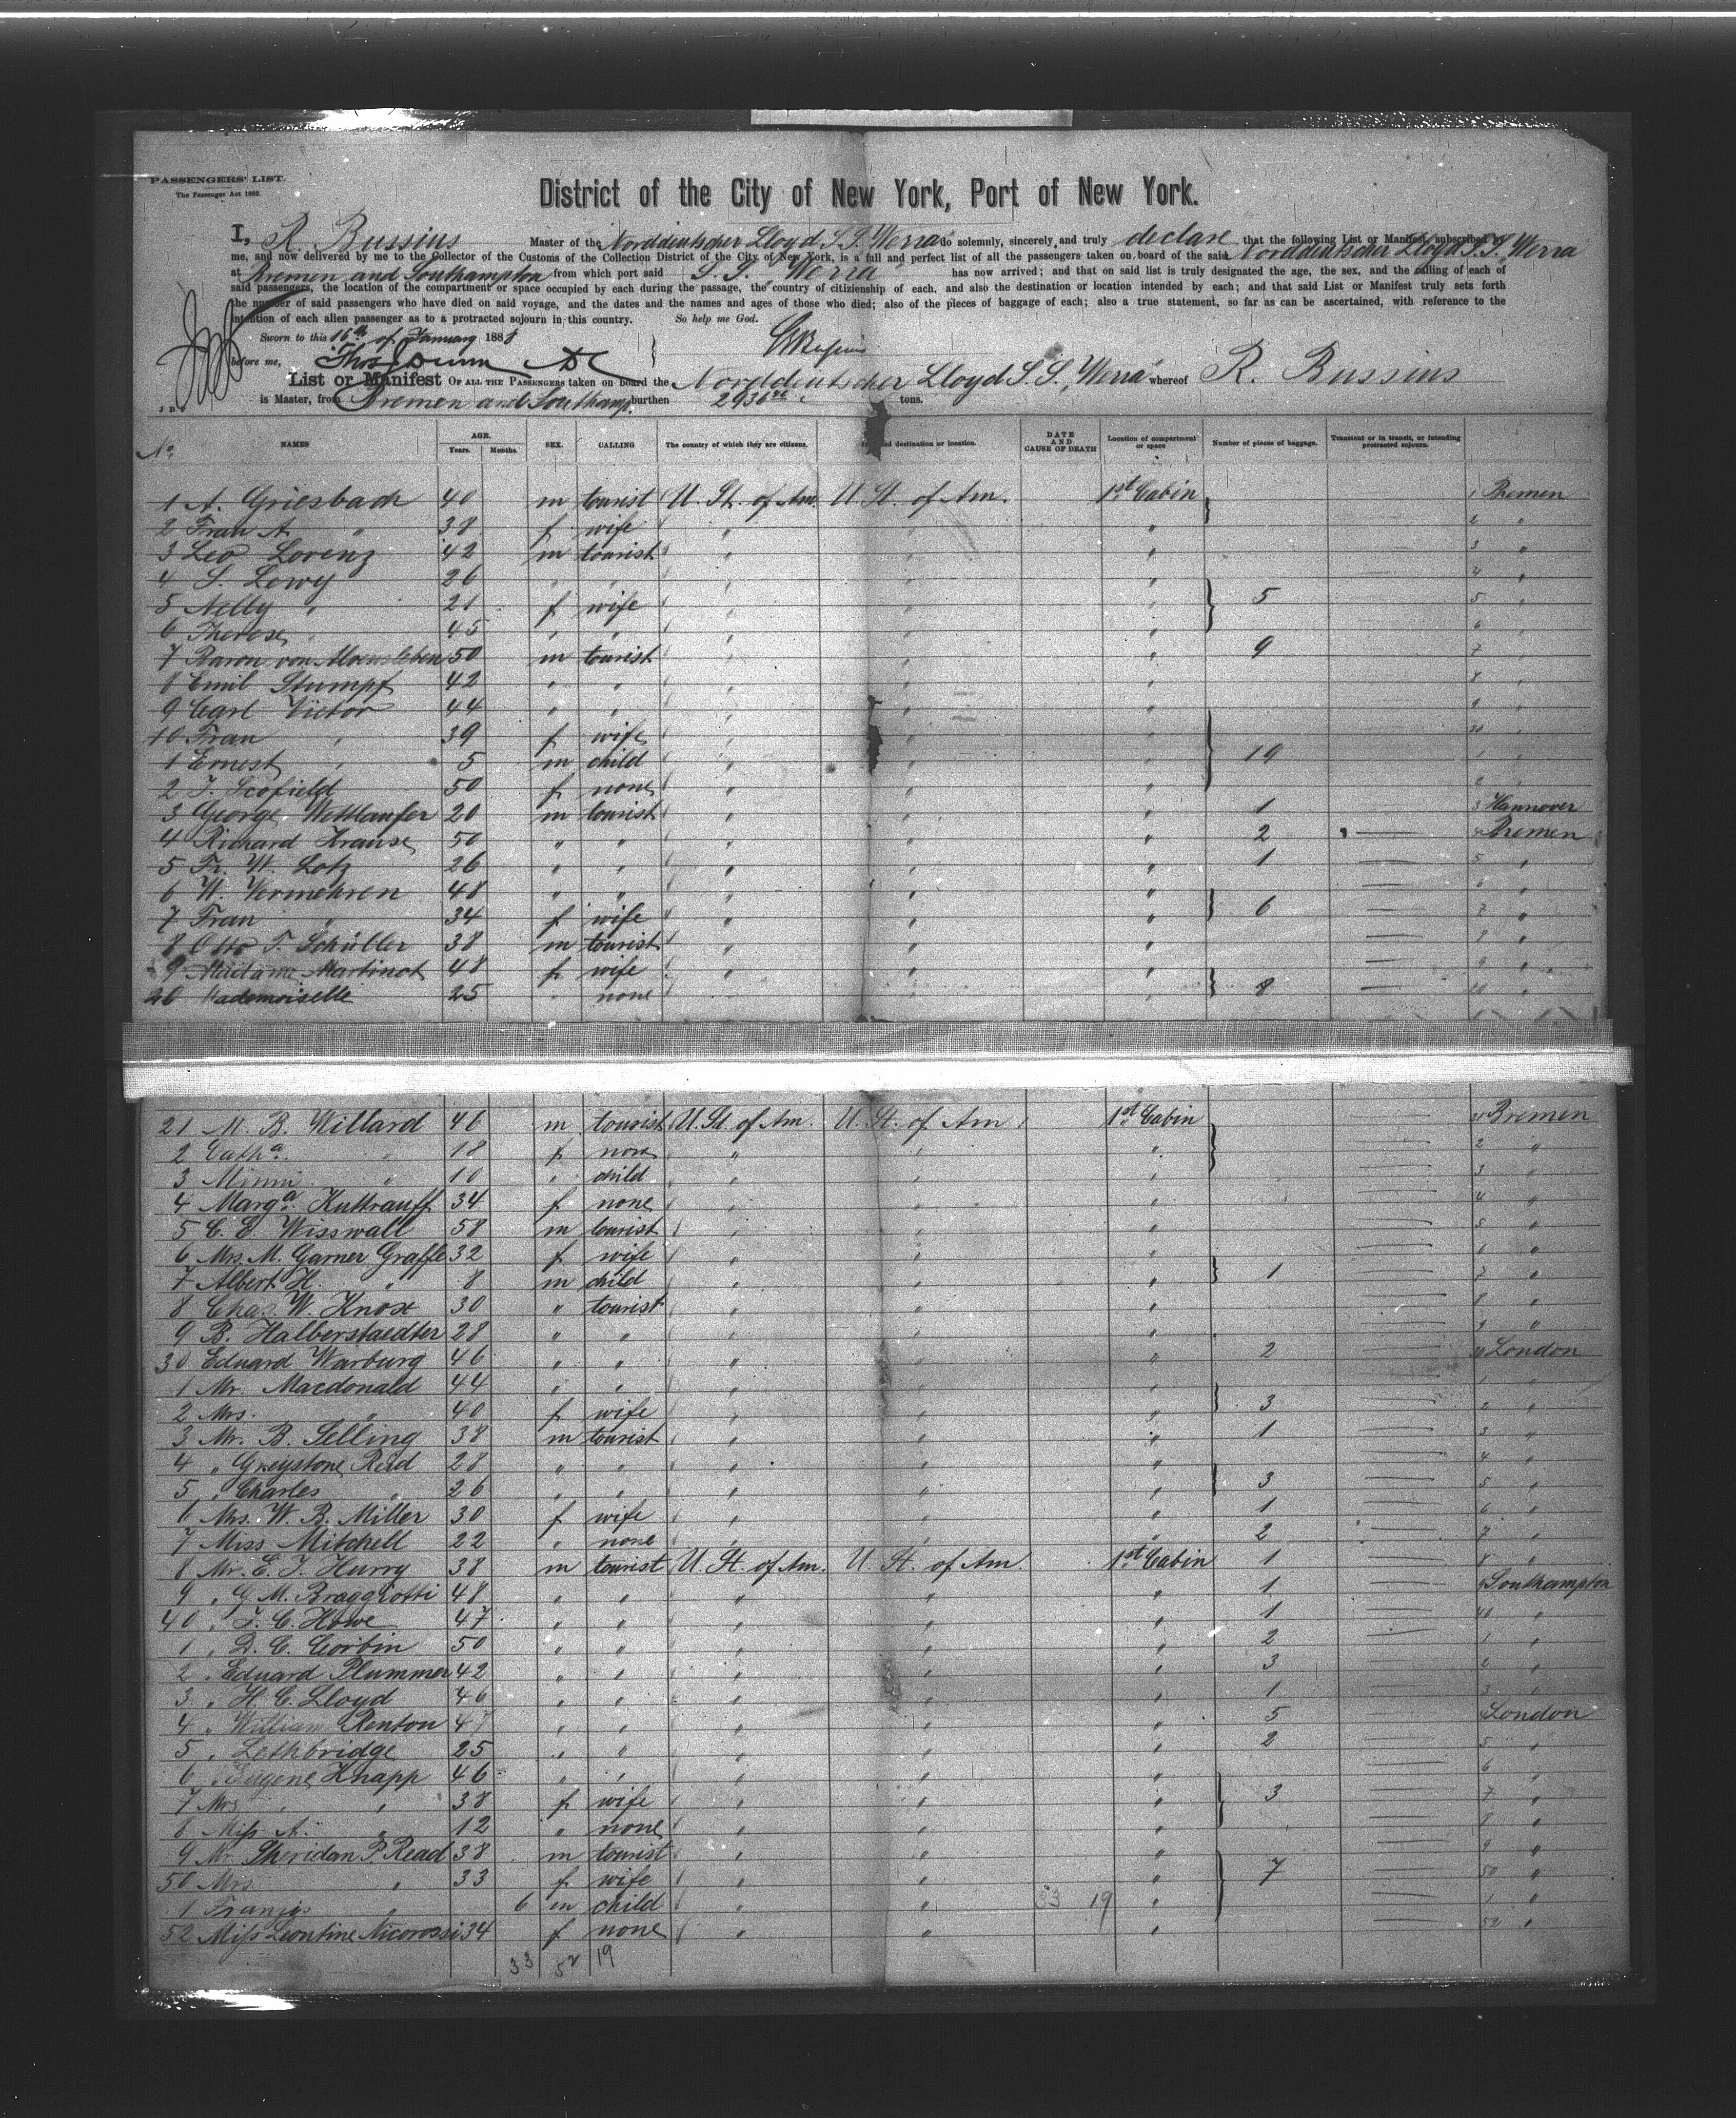 PASSENGERS' LIST.
The Passenger Act 1882.
District of the City of New York, Port of New York.
I, R. Bussius Master of the Norddeutscher Lloyd S.S. Werra do solemnly, sincerely and truly declare that the following List or Manifest, subscribed by
me, and now delivered by me to the Collector of the Customs of the Collection District of the City of New York, is a full and perfect list of all the passengers taken on board of the said Norddeutscher Lloyd S.S. Werra
at Bremen and Southampton from which port said S.S. Werra has now arrived; and that on said list is truly designated the age, the sex, and the calling of each of
said passengers, the location of the compartment or space occupied by each during the passage, the country of citizienship of each, and also the destination or location intended by each; and that said List or Manifest truly sets forth
the number of said passengers who have died on said voyage, and the dates and the names and ages of those who died; also of the pieces of baggage of each; also a true statement, so far as can be ascertained, with reference to the
intention of each alien passenger as to a protracted sojourn in this country. So help me God.
Sworn to this 16th of January 1888
before me, Thos Dunn DC
List or Manifest OF ALL THE PASSENGERS taken on board the Norddeutscher Lloyd S.S. "Werra" whereof R. Bussius
is Master, from Bremen and Southamp. burthen 2936 tons.
No. NAMES AGE. Years. Months. SEX. CALLING The country of which they are citizens. Intended destination or location. DATE AND CAUSE OF DEATH Location of compartment or space Number of pieces of baggage. Transient or in transit, or intending protracted sojourn.
1 A. Griesbach 40 m tourist U. St. of Am. U. St. of Am. 1st Cabin 1 Bremen
2 Frau A. " 38 f wife " " " 2 "
3 Leo Lorenz 42 m tourist " " " 3 "
4 S. Lewy 26 " " " " " 4 "
5 Nelly " 21 f wife " " " 5 5 "
6 Therese " 45 " " " " " 6 "
7 Baron von 50 m tourist " " " 9 7 "
8 Emil Stumpf 42 " " " " " 8 "
9 Carl Victor 44 " " " " " 9 "
10 Frau " 39 f wife " " " 10 "
1 Ernest " 5 m child " " " 19 1 "
2 Scofield 50 f none " " " 2 "
3 George Wettlaufer 20 m tourist " " " 1 3 Hannover
4 Richard Krause 50 " " " " " 2 4 Bremen
5 Fr. W. Lotz 26 " " " " " 1 5 "
6 W. Vermehren 48 " " " " " 6 "
7 Frau " 34 f wife " " " 6 7 "
8 Otto F. Schüller 38 m tourist " " " 8 "
9 Madame Martinot 48 f wife " " " 9 "
20 Mademoiselle 25 " none " " " 8 20 "
21 M. B. Willard 46 m tourist U. St. of Am. U. St. of Am. 1st Cabin 21 Bremen
2 Catha. " 18 f none " " " 2 "
3 Minni " 10 " child " " " 3 "
4 Marga. Kuttrauff 34 f none " " " 4 "
5 C. E. Wisswall 58 m tourist " " " 5 "
6 Mrs. M. Garner Graffe 32 f wife " " " 6 "
7 Albert H. " 8 m child " " " 1 7 "
8 Chas. W. Knox 30 " tourist " " " 8 "
9 B. Halberstaedter 28 " " " " " 9 "
30 Eduard Warburg 46 " " " " " 2 30 London
1 Mr. Macdonald 44 " " " " " 1 "
2 Mrs. " 40 f wife " " " 3 2 "
3 Mr. B. Selling 38 m tourist " " " 1 3 "
4 " Greystone Reid 28 " " " " " 4 "
5 " Charles " 26 " " " " " 3 5 "
6 Mrs. W. B. Miller 30 f wife " " " 1 6 "
7 Miss Mitchell 22 " none " " " 2 7 "
8 Mr. E. J. Hurry 38 m tourist U. St. of Am. U. St. of Am. 1st Cabin 1 8 "
9 " G. M. Braggiotti 48 " " " " " 1 9 Southampton
40 " J. C. Howe 47 " " " " " 1 40 "
1 " D. C. Corbin 50 " " " " " 2 1 "
2 " Eduard Plummer 42 " " " " " 3 2 "
3 " H. C. Lloyd 46 " " " " " 1 3 "
4 " William Renton 47 " " " " " 5 4 London
5 " Lethbridge 25 " " " " " 2 5 "
6 " Eugene Knapp 46 " " " " " 6 "
7 Mrs. " " 38 f wife " " " 3 7 "
8 Miss A. " 12 " none " " " 8 "
9 Mr. Sheridan P. Read 38 m tourist " " " 9 "
50 Mrs. " 33 f wife " " " 7 50 "
1 Francis " 6 m child " " 33 19 " 1 "
52 Miss Leontine Nicorossi 34 f none " " " 52 "
33 52 19